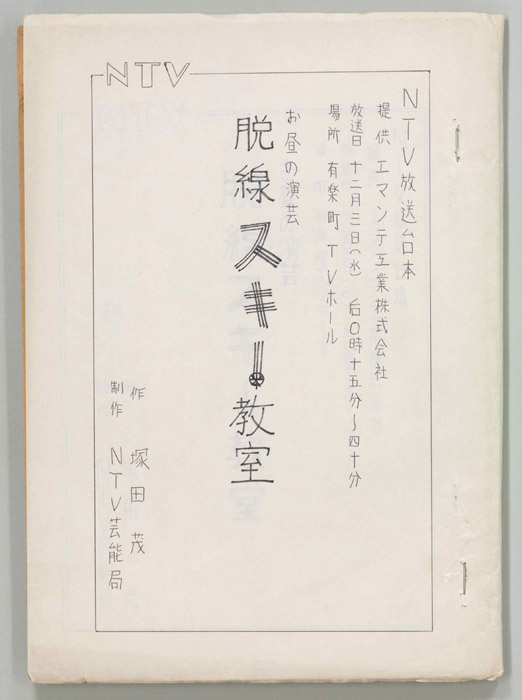 NTV
NTV放送台本
提供 エマンテ工業株式会社
放送日 十二月三日(水) 后0時十五分〜四十分
場所 有楽町 TVホール
お昼の演芸
脱線スキー教室
作 塚田茂
制作 NTV芸能局